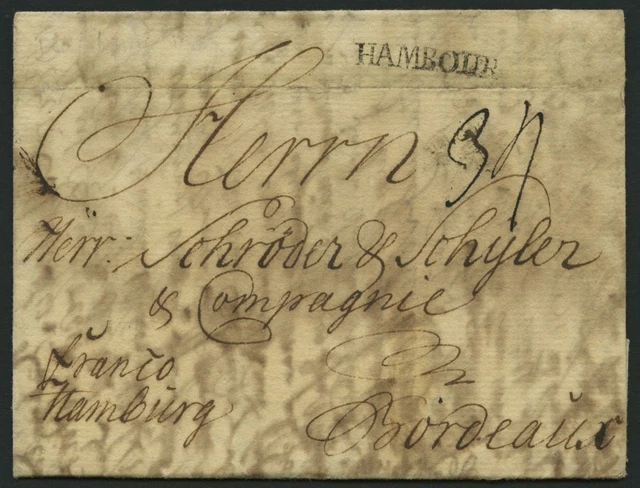 HAMBOUR
Herrn 34
Herr: Schröder & Schÿler
& Compagnie
Franco
Hamburg
Bordeaux